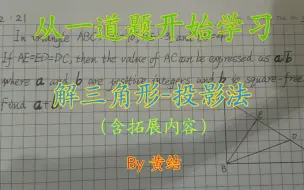 从一道题开始学习
If AE=ED=DC, then the value of AC can be expressed as a√b
where a and b are positive integers and b is square-free
解三角形-投影法
Find a+b
（含拓展内容）
By 黄结